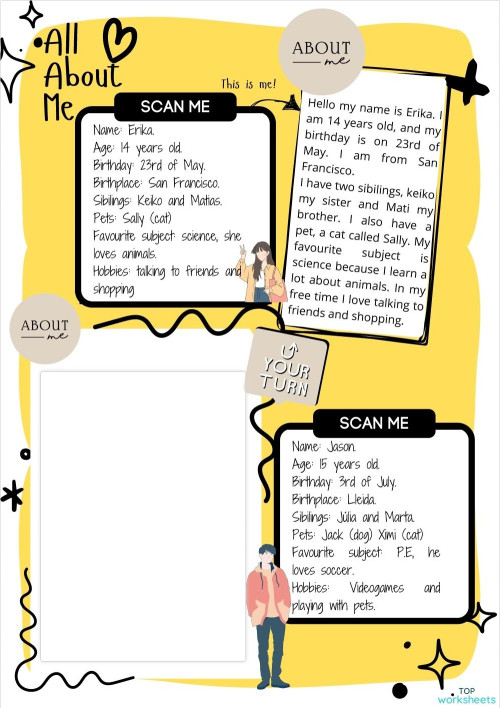 All
About
Me
ABOUT
me
This is me!
SCAN ME
Name: Erika.
Age: 14 years old.
Birthday: 23rd of May.
Birthplace: San Francisco.
Sibilings: Keiko and Matias.
Pets: Sally (cat)
Favourite subject: science, she
loves animals.
Hobbies: talking to friends and
shopping
Hello my name is Erika. I
am 14 years old, and my
birthday is on 23rd of
May. I am from San
Francisco.
I have two sibilings, keiko
my sister and Mati my
brother. I also have a
pet, a cat called Sally. My
favourite subject is
science because I learn a
lot about animals. In my
free time I love talking to
friends and shopping.
ABOUT
me
YOUR
TURN
SCAN ME
Name: Jason.
Age: 15 years old.
Birthday: 3rd of July.
Birthplace: Lleida.
Sibilings: Júlia and Marta.
Pets: Jack (dog) Ximi (cat)
Favourite subject: P.E, he
loves soccer.
Hobbies: Videogames and
playing with pets.
TOP
worksheets